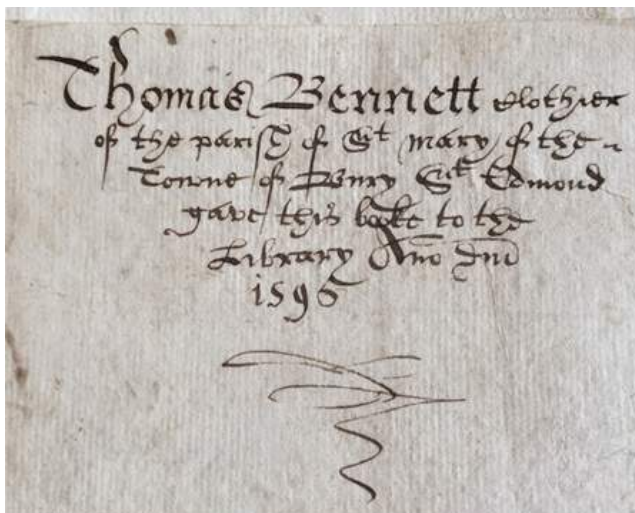 Thomas Bennett Clothier
of the parish of St mary of the
Towne of Bury St Edmond
gave this booke to the
Library Ano dni
1595